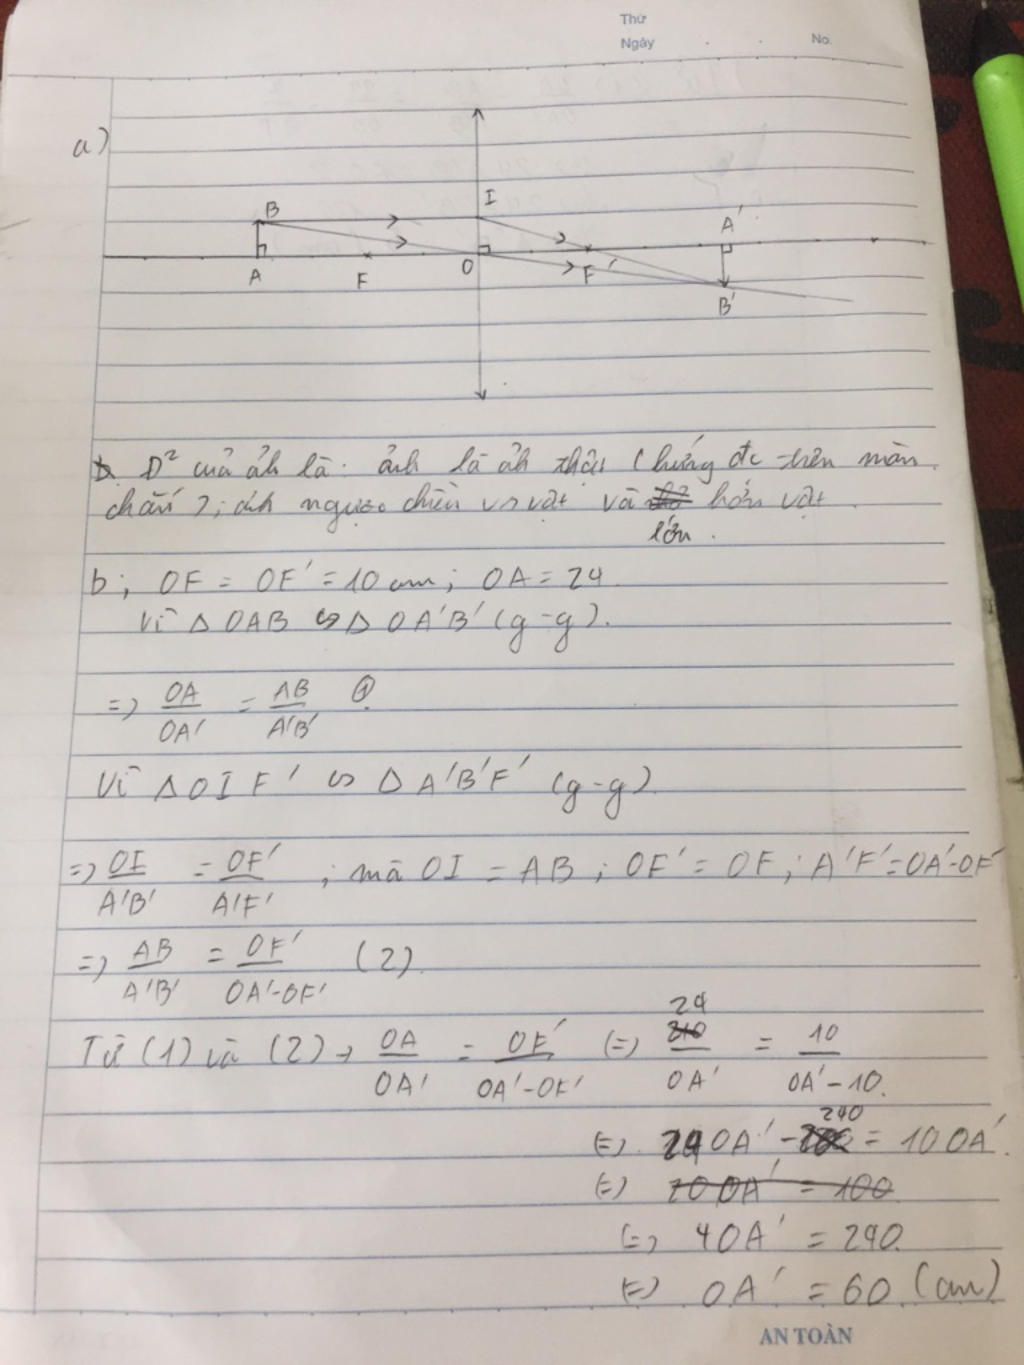 Thứ
Ngày . . No.
a)
B I A'
A F O F' B'
Đ² của ảh là: ảh là ảh thật (hứng đc trên màn
chắn); ảh ngược chiều vs vật và lớn hơn vật.
b; OF = OF' = 10 cm; OA = 24
Vì Δ OAB ∽ Δ OA'B' (g-g).
=> OA/OA' = AB/A'B' (1)
Vì Δ OIF' ∽ Δ A'B'F' (g-g)
=> OI/A'B' = OF'/A'F' ; mà OI = AB; OF' = OF; A'F' = OA'-OF'
=> AB/A'B' = OF'/OA'-OF' (2)
Từ (1) và (2) → OA/OA' = OF'/OA'-OF' (=) 24/OA' = 10/OA'-10.
(=) 24 OA' - 240 = 10 OA'.
(=) 10 OA' = 100
(=) 4 OA' = 240.
(=) OA' = 60 (cm)
AN TOÀN